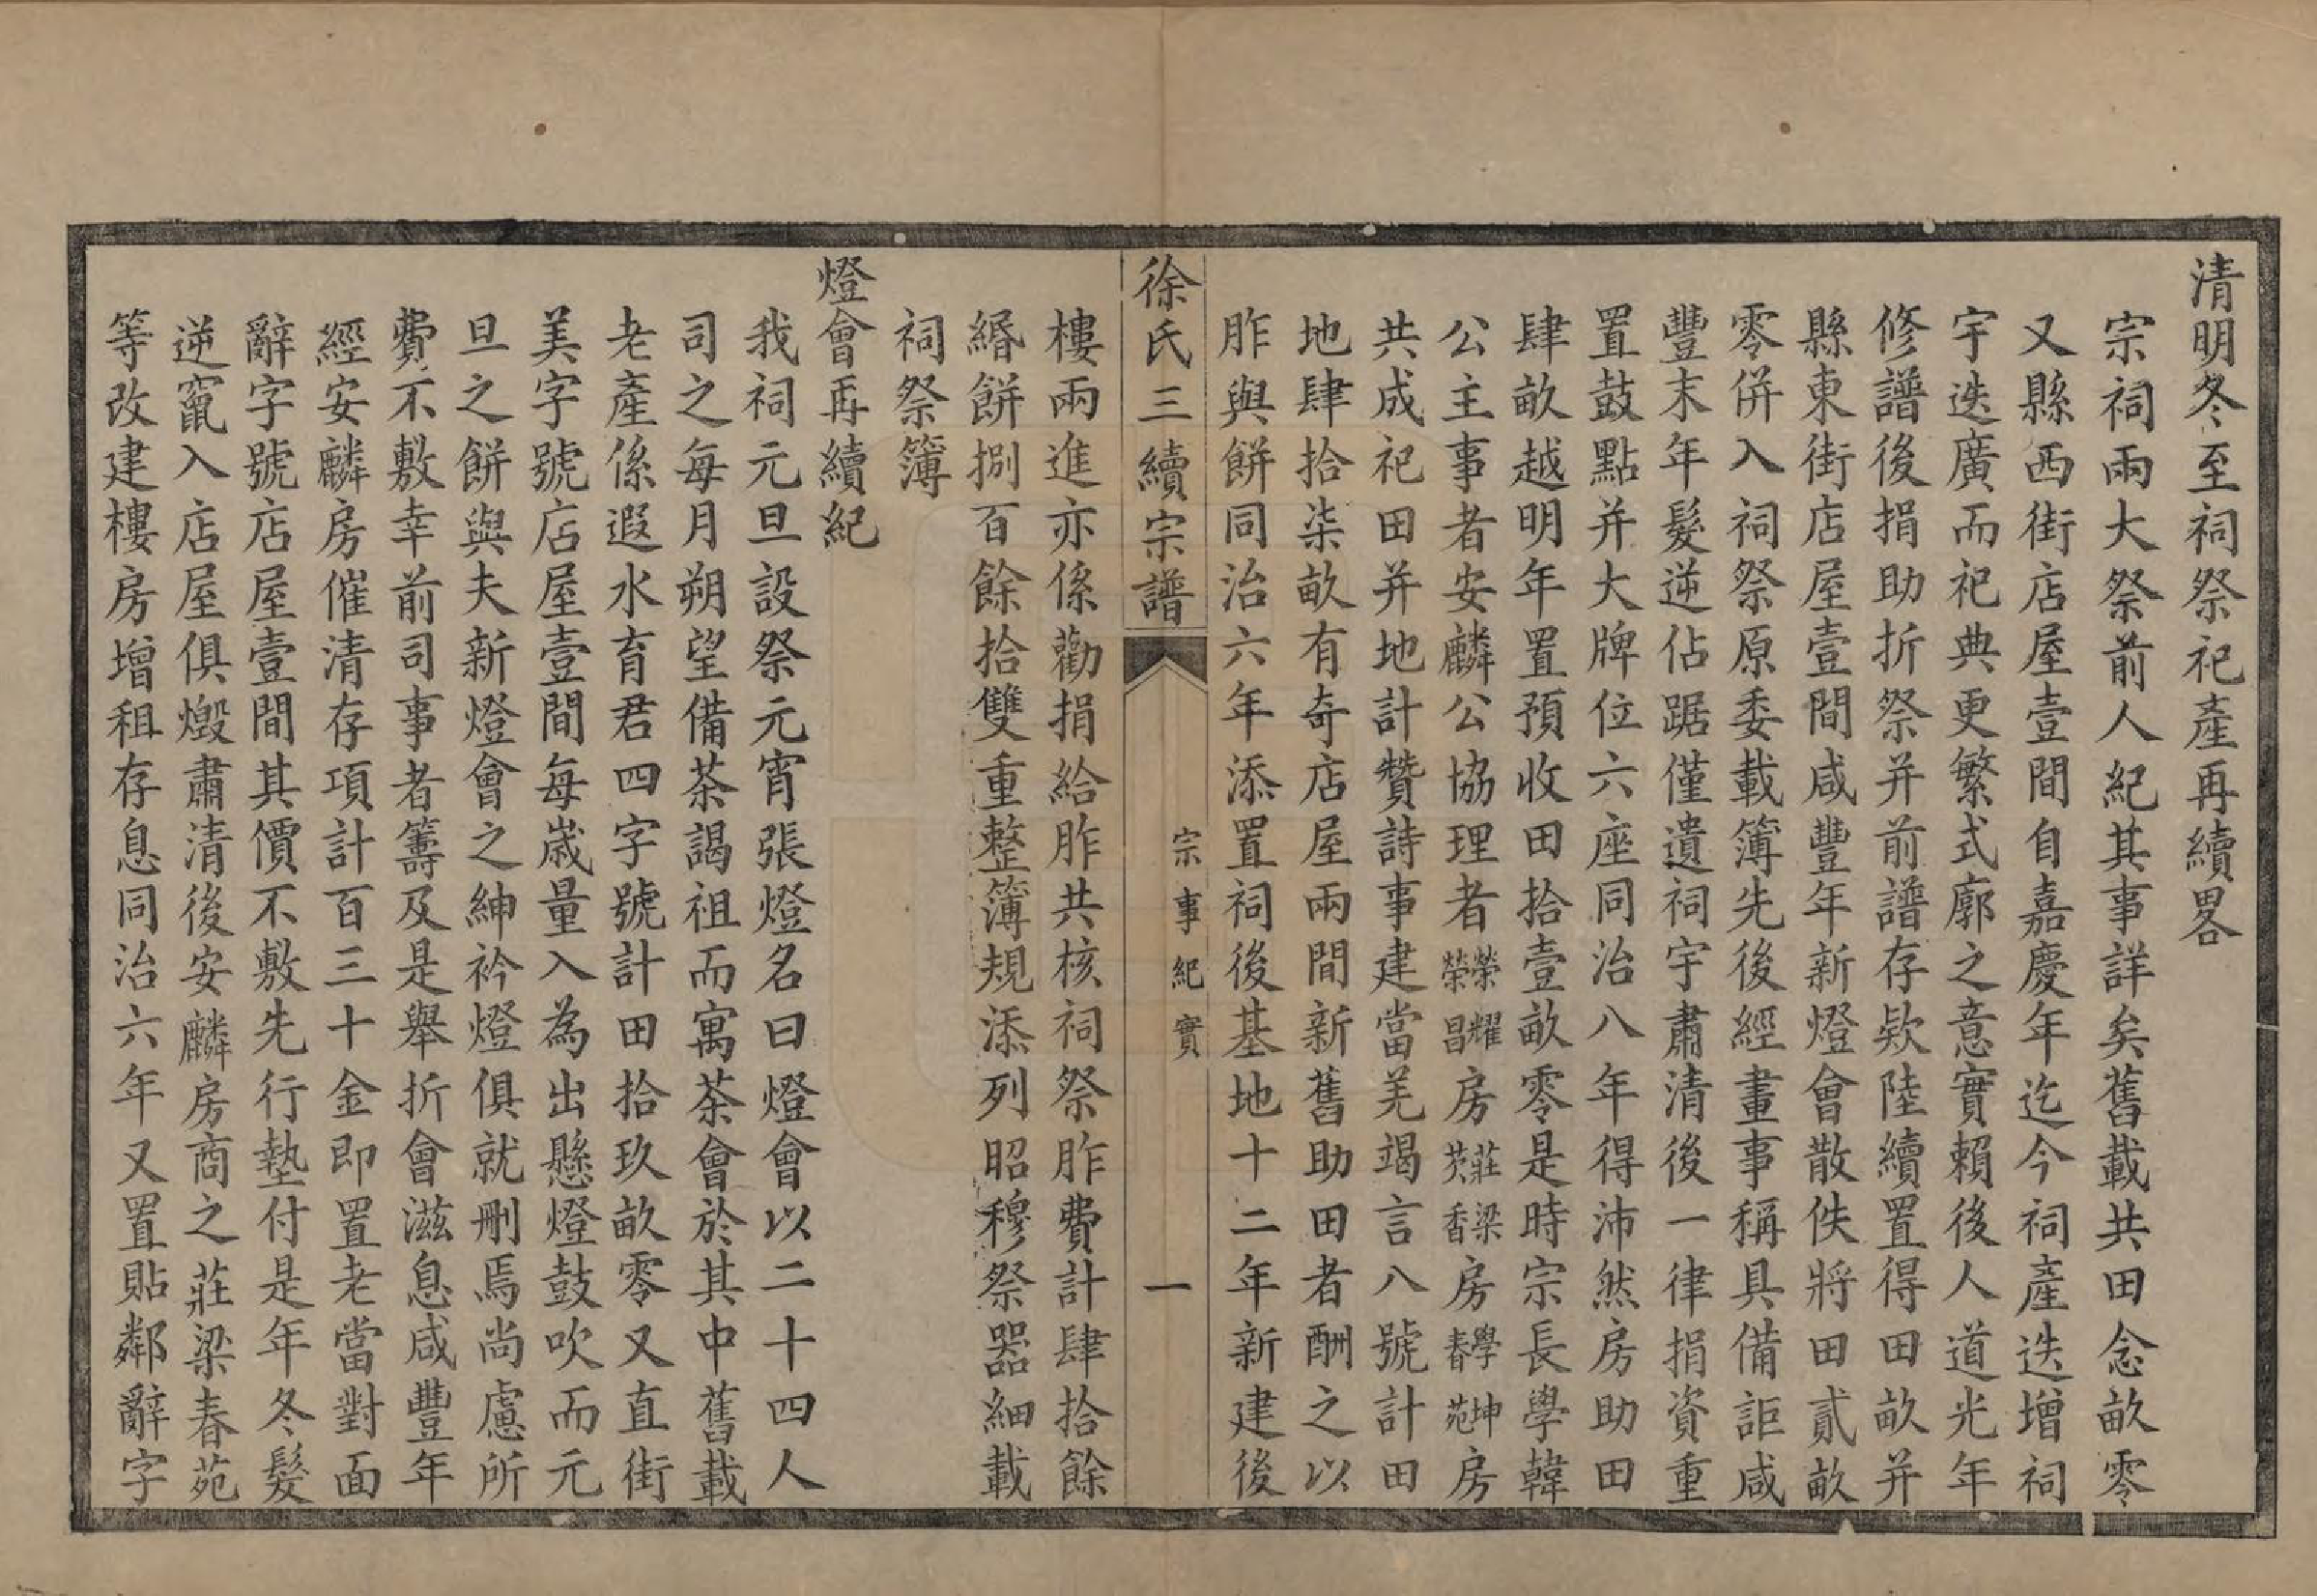 清明冬至祠祭祀產再續畧
宗祠兩大祭前人紀其事詳矣舊載共田念畝零
又縣西街店屋壹間自嘉慶年迄今祠產迭增祠
宇迭廣而祀典更繁式廓之意實賴後人道光年
修譜後捐助折祭并前譜存欵陸續置得田畝并
縣東街店屋壹間咸豐年新燈會散佚將田貳畝
零併入祠祭原委載簿先後經畫事稱具備詎咸
豐末年髮逆佔踞僅遺祠宇肅清後一律捐資重
置鼓點并大牌位六座同治八年得沛然房助田
肆畝越明年置預收田拾壹畝零是時宗長學韓
公主事者安麟公協理者榮耀榮昌房莊梁芡香房學坤春苑房
共成祀田并地計贊詩事建當羌竭言八號計田
地肆拾柒畝有奇店屋兩間新舊助田者酬之以
胙與餅同治六年添置祠後基地十二年新建後
徐氏三續宗譜 宗事紀實 一
樓兩進亦係勸捐給胙共核祠祭胙費計肆拾餘
緡餅捌百餘拾雙重整簿規添列昭穆祭器細載
祠祭簿
燈會再續紀
我祠元旦設祭元宵張燈名曰燈會以二十四人
司之每月朔望備茶謁祖而寓茶會於其中舊載
老產係遐水育君四字號計田拾玖畝零又直街
美字號店屋壹間每歲量入為出懸燈鼓吹而元
旦之餅與夫新燈會之紳衿燈俱就刪焉尚慮所
費不敷幸前司事者籌及是舉折會滋息咸豐年
經安麟房催清存項計百三十金即置老當對面
辭字號店屋壹間其價不敷先行墊付是年冬髮
逆竄入店屋俱燬肅清後安麟房商之莊梁春苑
等改建樓房增租存息同治六年又置貼鄰辭字